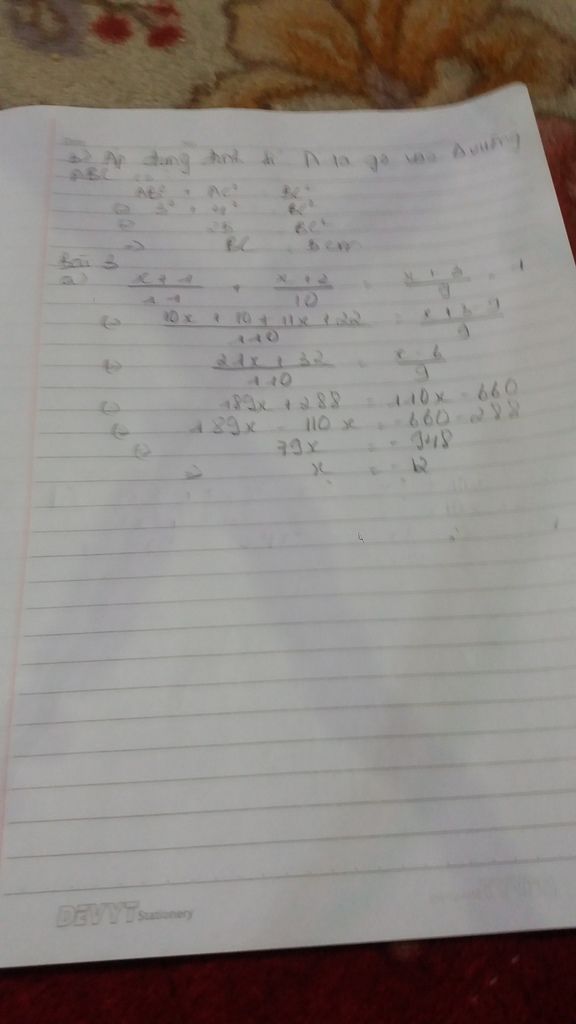 a) Áp dụng định lí Pi ta go vào Δ vuông
ABC
AB² + AC² BC²
⇔ 3² + 4² BC²
⇔ 25 BC²
⇒ BC 5 cm
Bài 3
a) x + 1 / 11 + x + 2 / 10 = x + 3 / 9 - 1
⇔ 10x + 10 + 11x + 22 / 110 = x + 3 - 9 / 9
⇔ 21x + 32 / 110 = x - 6 / 9
⇔ 189x + 288 = 110x - 660
⇔ 189x - 110x = -660 - 288
⇔ 79x = -948
⇒ x = -12
DEVYT Stationery